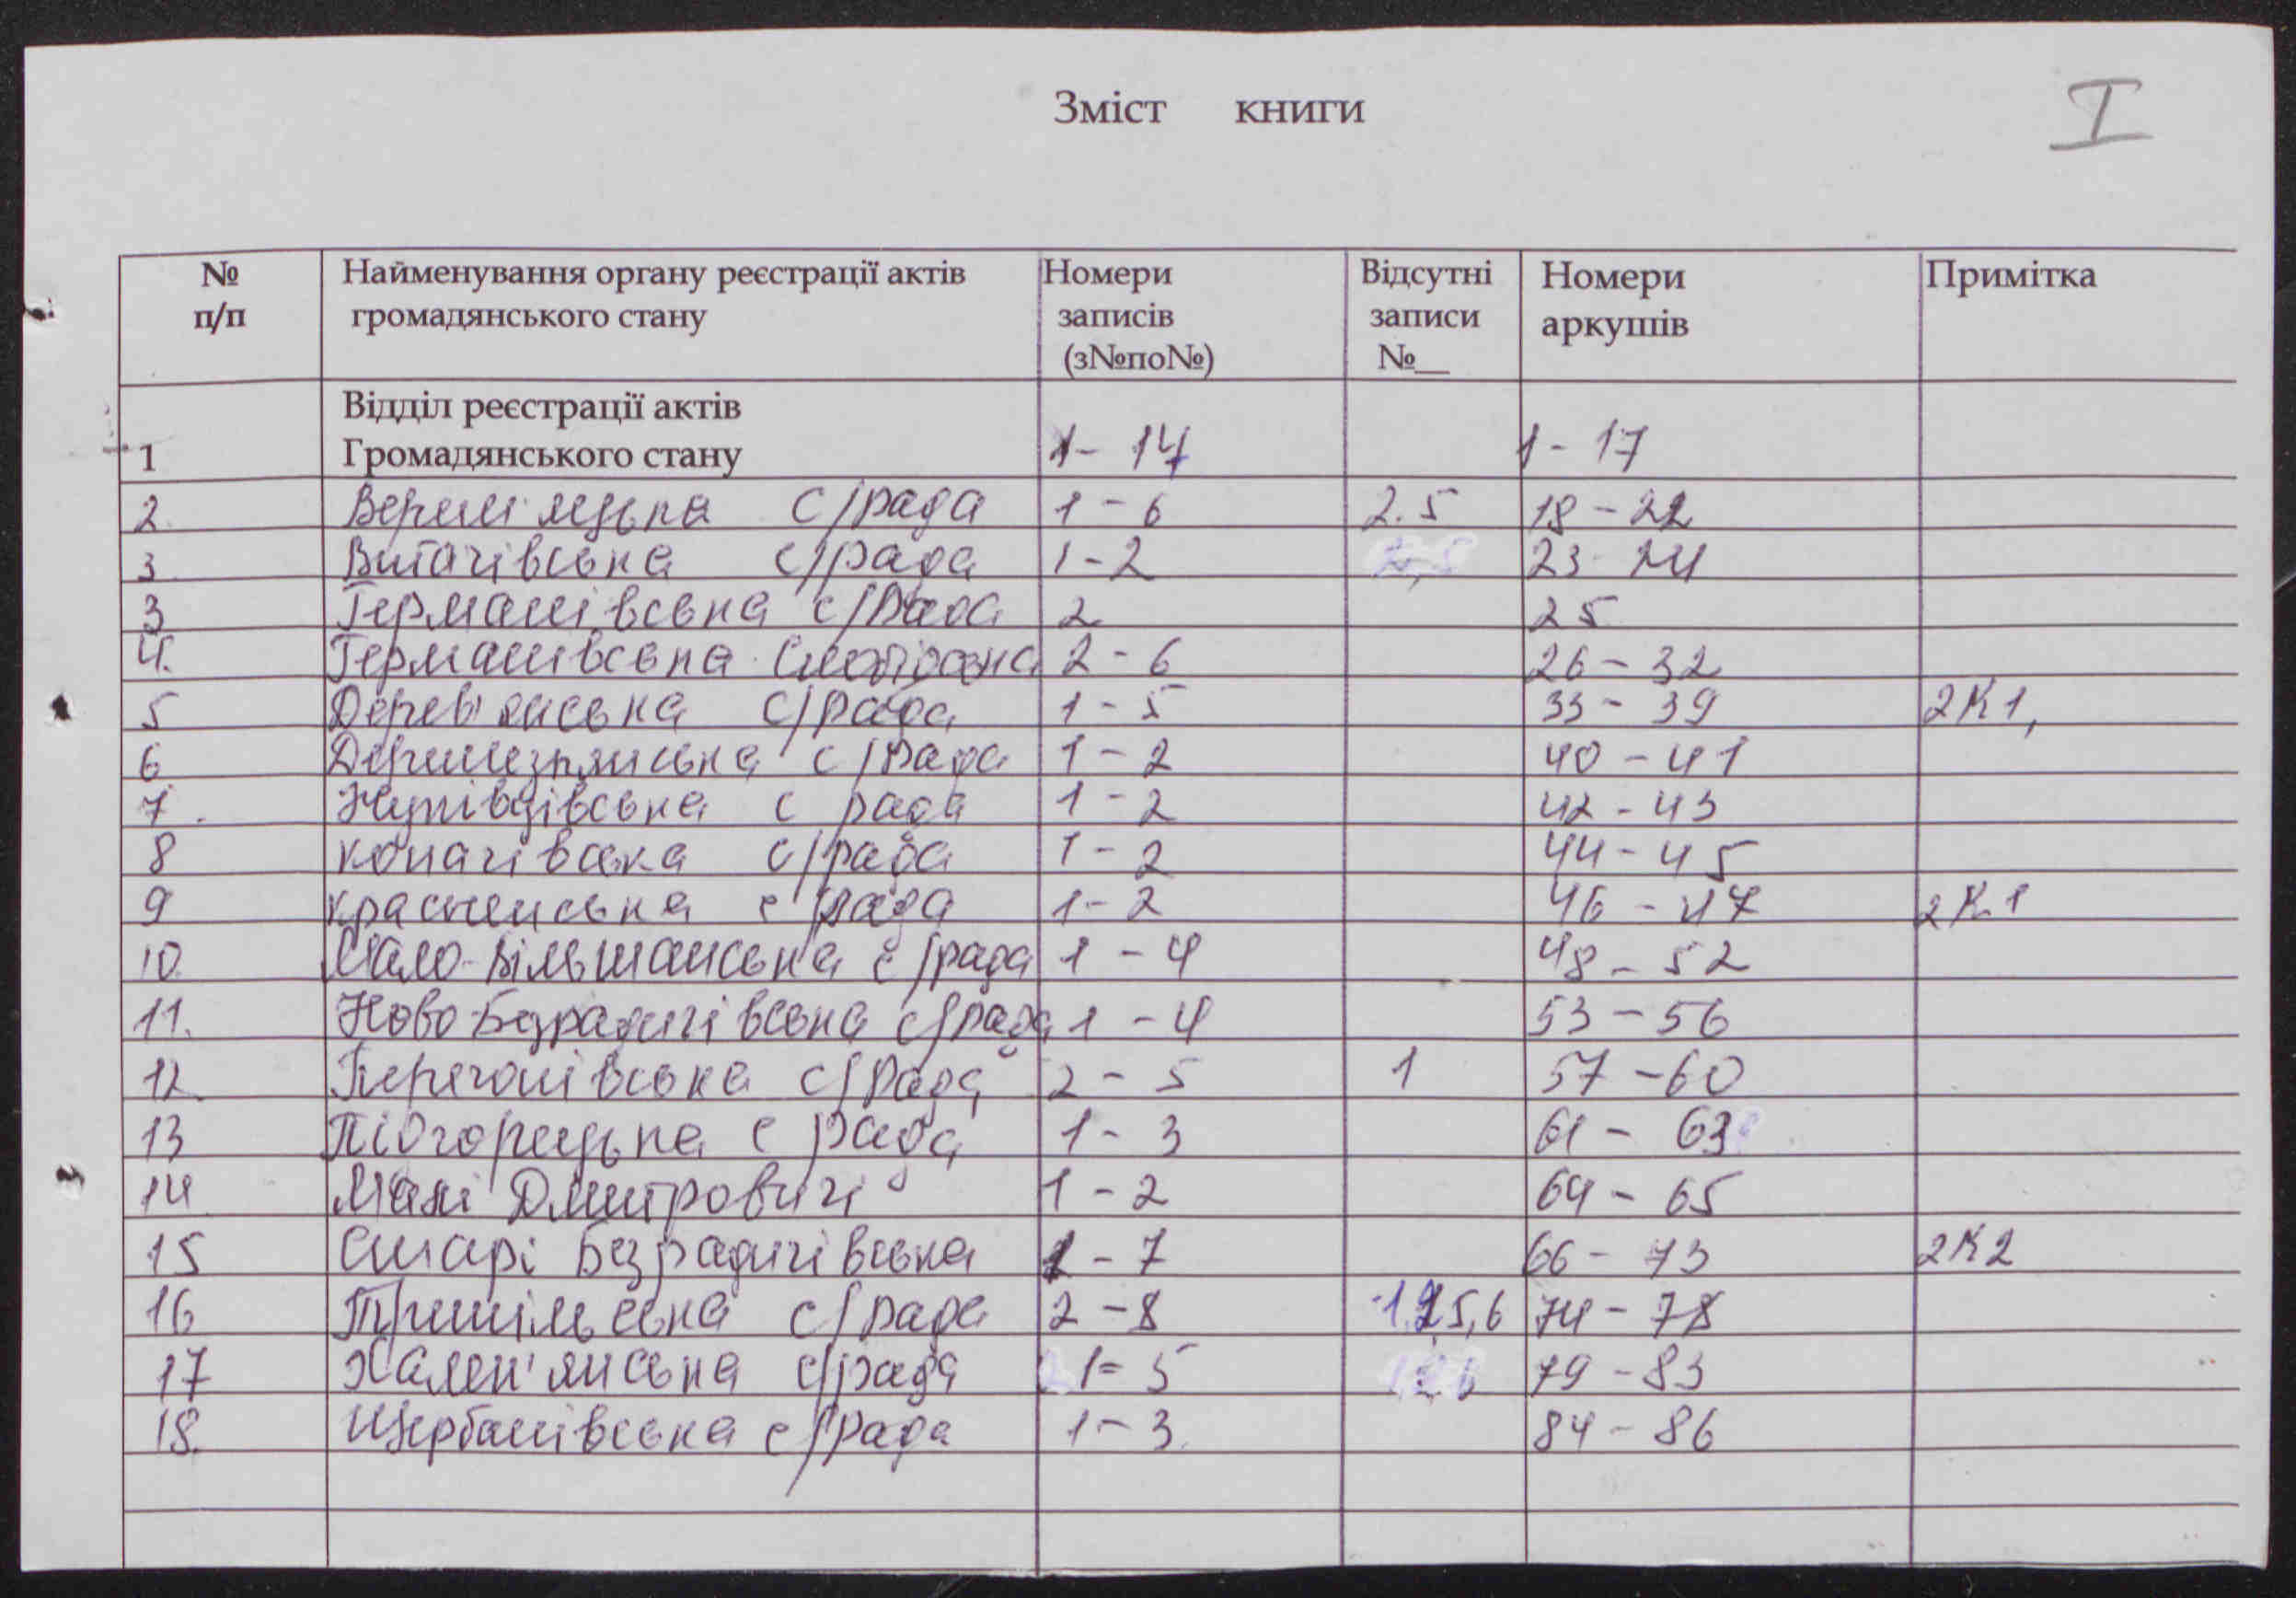 Зміст книги
I
№ п/п Найменування органу реєстрації актів громадянського стану Номери записів (з№по№) Відсутні записи №__ Номери аркушів Примітка
1 Відділ реєстрації актів Громадянського стану 1 - 14 1 - 17
2. Верем'яцька с/рада 1 - 6 2.5 18 - 22
3 Витачівська с/рада 1 - 2 23 - 24
3 Германівська с/рада 2 25
4. Германівська Слобідська 2 - 6 26 - 32
5 Дерев'янська с/рада 1 - 5 33 - 39 2К1,
6 1 - 2 40 - 41
7. с рада 1 - 2 42 - 43
8 копачівська с/рада 1 - 2 44 - 45
9 красненська с/рада 1 - 2 46 - 47 2К1
10. Мало-Вільшанська с/рада 1 - 4 48 - 52
11. Ново-Безрадичівська с/рада 1 - 4 53 - 56
12. Перегонівська с/рада 2 - 5 1 57 - 60
13 Підгорецька с рада 1 - 3 61 - 63
14 Малі Дмитровичі 1 - 2 64 - 65
15 Старі Безрадичівська 1 - 7 66 - 73 2К2
16 Трипільська с/рада 2 - 8 74 - 78
17 Халеп'янська с/рада 1 = 5 79 - 83
18. Щербанівська с/рада 1 - 3. 84 - 86